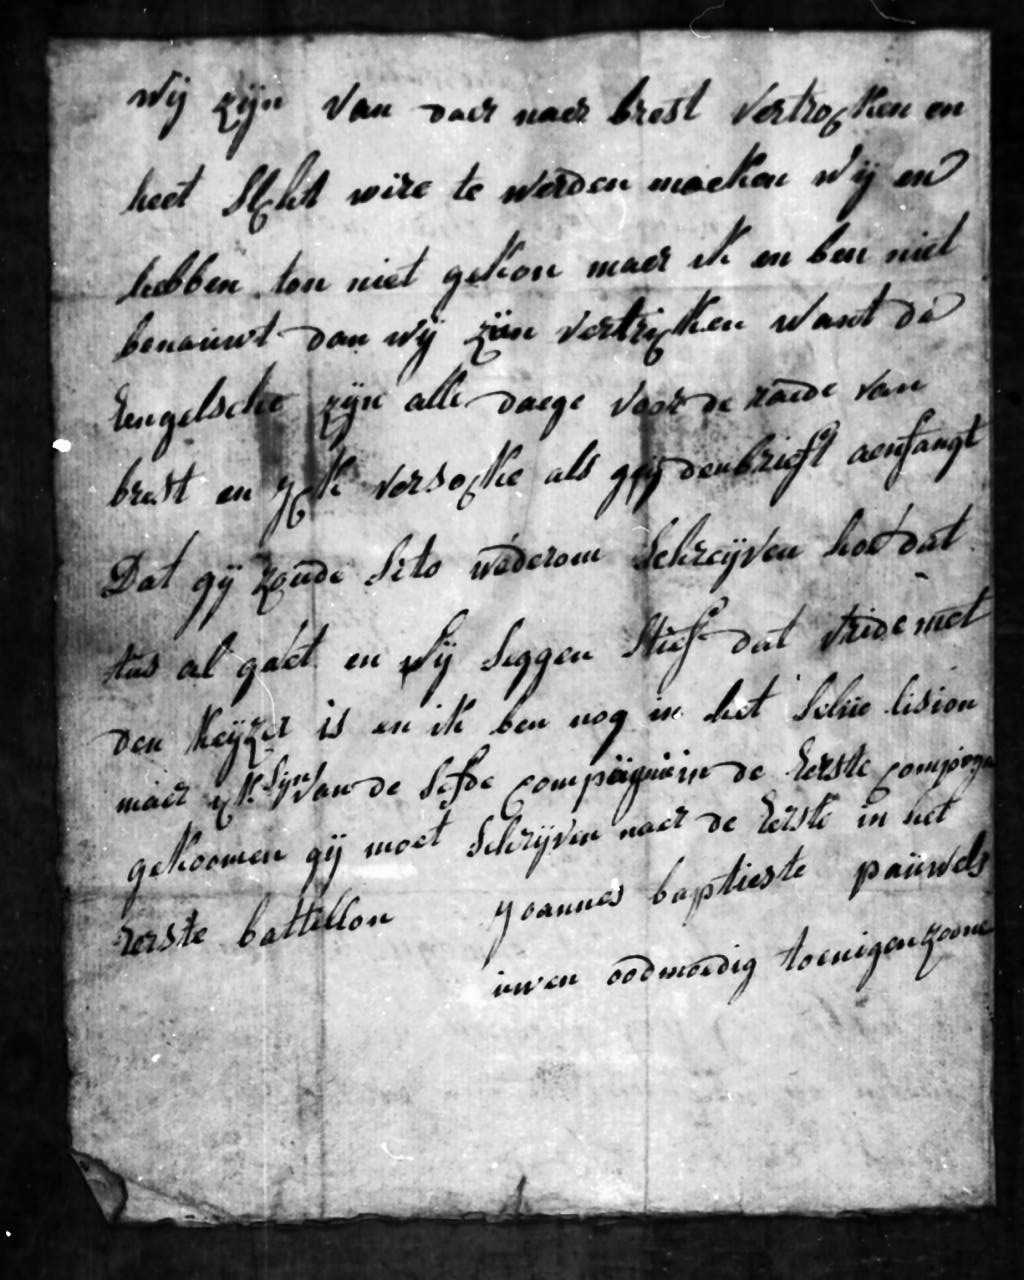 wij zijn van daer naer brest vertrocken en
heet slcht wire te werden maeken wij en
hebben ton niet gekon maer ik en ben niet
benauwt dan wij zijn vertricken want de
Eengelsche zijn alle daege voor de raede van
brest en yck versocke als gij den brieft aenfangt
Dat gij zoude srto wederom schreijven hoe dat
tus al gaet en wij seggen stief dat vride met
den keyzer is en ik ben nog in het selve lision
maer yck sijn van de sesde compagnie in de eerste
gekoomen gij moet schrijven naer de eerste in het
eerste battellon yoannes baptieste pauwels
uwen oodmoedig toenigen zoone